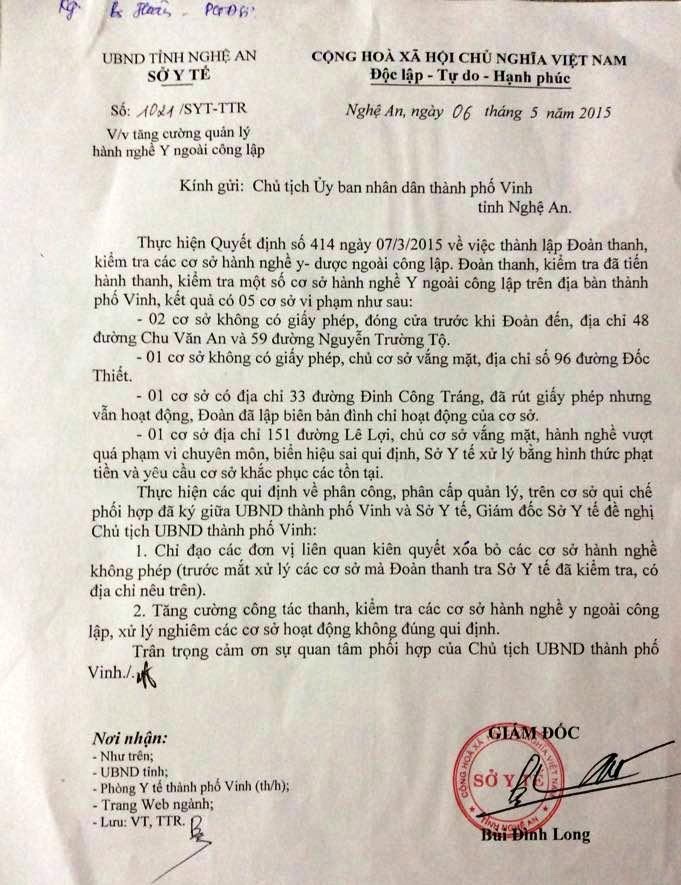 Kg. Bs Huấn - PGĐSi
UBND TỈNH NGHỆ AN
SỞ Y TẾ
CỘNG HOÀ XÃ HỘI CHỦ NGHĨA VIỆT NAM
Độc lập - Tự do - Hạnh phúc
Số: 1021/SYT-TTR
Nghệ An, ngày 06 tháng 5 năm 2015
V/v tăng cường quản lý
hành nghề Y ngoài công lập
Kính gửi: Chủ tịch Ủy ban nhân dân thành phố Vinh
tỉnh Nghệ An.
Thực hiện Quyết định số 414 ngày 07/3/2015 về việc thành lập Đoàn thanh,
kiểm tra các cơ sở hành nghề y- dược ngoài công lập. Đoàn thanh, kiểm tra đã tiến
hành thanh, kiểm tra một số cơ sở hành nghề Y ngoài công lập trên địa bàn thành
phố Vinh, kết quả có 05 cơ sở vi phạm như sau:
- 02 cơ sở không có giấy phép, đóng cửa trước khi Đoàn đến, địa chỉ 48
đường Chu Văn An và 59 đường Nguyễn Trường Tộ.
- 01 cơ sở không có giấy phép, chủ cơ sở vắng mặt, địa chỉ số 96 đường Đốc
Thiết.
- 01 cơ sở có địa chỉ 33 đường Đinh Công Tráng, đã rút giấy phép nhưng
vẫn hoạt động, Đoàn đã lập biên bản đình chỉ hoạt động của cơ sở.
- 01 cơ sở địa chỉ 151 đường Lê Lợi, chủ cơ sở vắng mặt, hành nghề vượt
quá phạm vi chuyên môn, biển hiệu sai qui định, Sở Y tế xử lý bằng hình thức phạt
tiền và yêu cầu cơ sở khắc phục các tồn tại.
Thực hiện các qui định về phân công, phân cấp quản lý, trên cơ sở qui chế
phối hợp đã ký giữa UBND thành phố Vinh và Sở Y tế, Giám đốc Sở Y tế đề nghị
Chủ tịch UBND thành phố Vinh:
1. Chỉ đạo các đơn vị liên quan kiên quyết xóa bỏ các cơ sở hành nghề
không phép (trước mắt xử lý các cơ sở mà Đoàn thanh tra Sở Y tế đã kiểm tra, có
địa chỉ nêu trên).
2. Tăng cường công tác thanh, kiểm tra các cơ sở hành nghề y ngoài công
lập, xử lý nghiêm các cơ sở hoạt động không đúng qui định.
Trân trọng cảm ơn sự quan tâm phối hợp của Chủ tịch UBND thành phố
Vinh./.
Nơi nhận:
- Như trên;
- UBND tỉnh;
- Phòng Y tế thành phố Vinh (th/h);
- Trang Web ngành;
- Lưu: VT, TTR.
GIÁM ĐỐC
SỞ Y TẾ
Bùi Đình Long